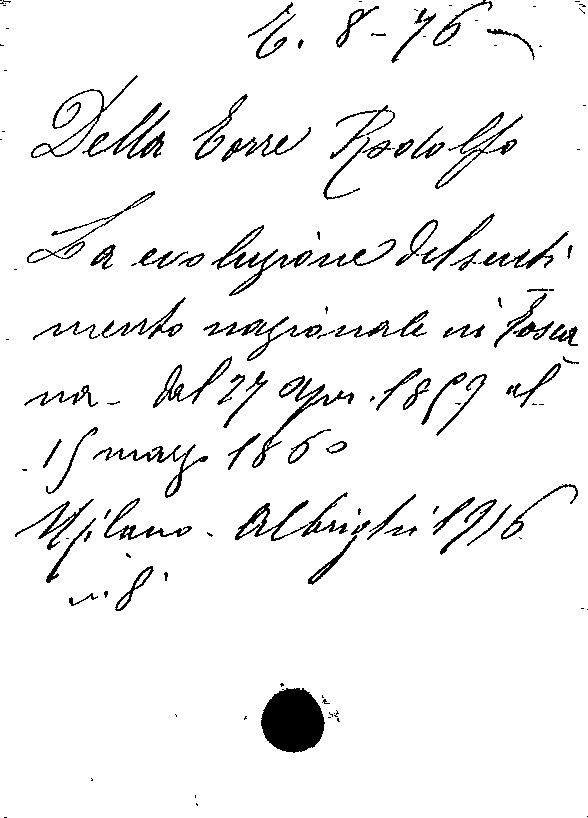 E. 8-76
Della Torre Rodolfo
La evoluzione del senti
mento nazionale in Tosca
na - dal 27 apr. 1859 al
15 marzo 1860
Milano - Albrighi 1916
in 8°